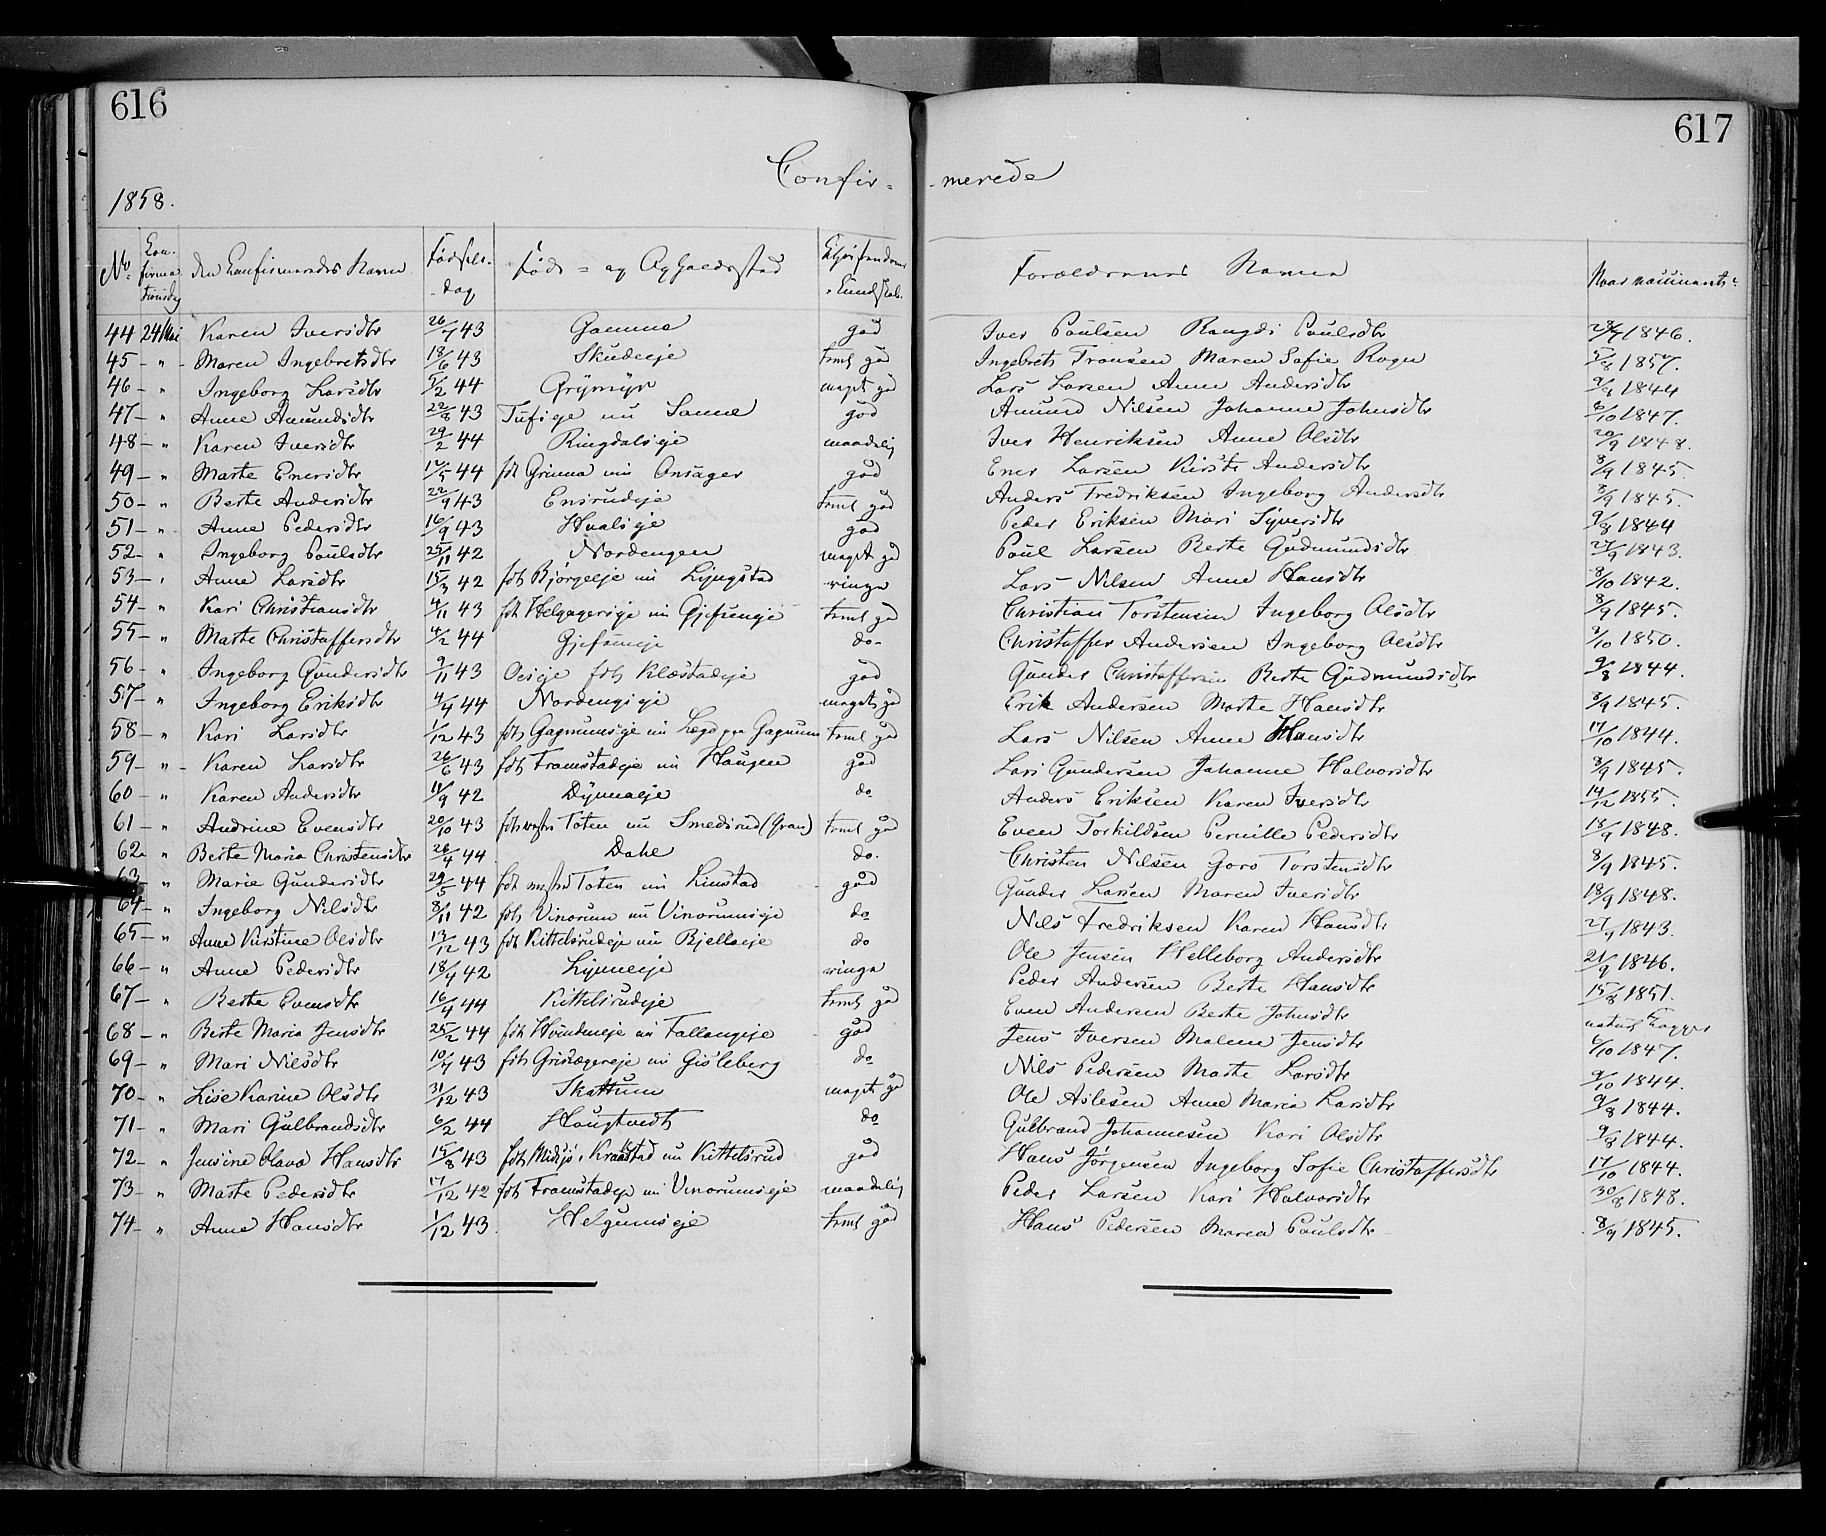 616
617
Confir-
-merede
1858.
No Con-firma-tionsdag den Confirmeredes Navn Fødsels-dag Føde- og Opholdssted Kundskab. Forældrenes Navne Naar vaccineret
44 24 Mai Karen Iversdtr 26/7 43 Gamme god Iver Paulsen Rangdi Paulsdtr 1846.
45 - " - Maren Ingebretsdtr 18/6 43 Skudeeje temel god Ingebret Fransen Maren Sofie 1857.
46 - " Ingeborg Larsdtr 5/2 44 Grymyr meget god Lars Larsen Anne Andersdtr 9/8 1844
47 - " Anne Amundsdtr 22/8 43 nu Sanne god Amund Nilsen Johanne Johnsdtr 6/10 1847.
48 - " Karen Iversdtr 29/2 44 Ringdalseje maadelig Iver Henriksen Anne Olsdtr 20/9 1848.
49 - " Marte Enersdtr 12/5 44 fdt Grinna nu Onsager god Ener Larsen Kirsti Andersdtr 8/9 1845.
50 - " Berte Andersdtr 22/9 43 Ensrudeje temel god Anders Fredriksen Ingeborg Andersdtr 8/9 1845.
51 - " Anne Pedersdtr 16/9 43 Hvalseje god Peder Eriksen Mari Syversdtr 9/8 1844
52 - " Ingeborg Paulsdtr 25/11 42 Nordengen meget god Paul Larsen Berte Gudmundsdtr 27/9 1843.
53 - " Anne Larsdtr 15/3 42 fdt Bjørgeeje nu Lyngstad ringe Lars Nilsen Anne Hansdtr 8/10 1842.
54 - " Kari Christiansdtr 4/11 43 fdt Helgagerseje nu temel god Christian Torstensen Ingeborg Olsdtr 8/9 1845.
55 - " Marte Christoffersdtr 4/2 44 do- Christoffer Andersen Ingeborg Olsdtr 9/10 1850.
56 - " Ingeborg Gundersdtr 9/11 43 Oeseje fdt Klæstadeje god Gunder Christoffersen Berte Gudmundsdtr 9/8 1844.
57 - " Ingeborg Eriksdtr 4/4 44 Nordengseje meget god Erik Andersen Marte Hansdtr 8/9 1845.
58 - " Kari Larsdtr 1/12 43 fdt Gagnumseje nu Gagnum temel god Lars Nilsen Anne Hansdtr 17/10 1844.
59 - " - Karen Larsdtr 26/6 43 fdt Framstadeje nu Haugen god Lars Gundersen Johanne Halvorsdtr 8/9 1845.
60 - " Karen Andersdtr 11/9 42 Dynnaeje do Anders Eriksen Karen Iversdtr 14/12 1855.
61 - " Andrine Evensdtr 20/10 43 fdt vestre Toten nu Smedsrud (Gran) temel god Even Torkildsen Pernille Pedersdtr 18/9 1848.
62 " Berte Maria Christensdtr 26/4 44. Dahl do. Christen Nilsen Goro Torstensdtr 8/9 1845.
63 - " Marie Gundersdtr 29/5 44 fdt vestre Toten nu Linstad god Gunder Larsen Maren Iversdtr 18/9 1848.
64 - " Ingeborg Nilsdtr 8/11 42 fdt Vinorum nu Vinorumseje do Nils Fredriksen Karen Hansdtr 27/9 1843.
65 - " Anne Kirstine Olsdtr 13/12 43 fdt Kittelsrudeje nu Bjellaeje do Ole Jensen Helleborg Andersdtr 21/9 1846.
66 - " Anne Pedersdtr 18/4 42 Lynneeje ringe Peder Andersen Berte Hansdtr 15/8 1851.
67 - " Berte Evensdtr 16/4 44 Kittelsrudeje temel god Even Andersen Berte Johnsdtr naturl Kopper
68 - " Berte Maria Jensdtr 25/2 44 fdt Hvindeneje nu Fallangeje god Jens Iversen Malene Jensdtr 6/10 1847.
69 - " Mari Nilsdtr 10/7 43 fdt Grinagereje nu Gisleberg do Nils Pedersen Marte Larsdtr 9/10 1844.
70 - " Lise Karine Olsdtr 31/12 43 Skattum meget god Ole Aslesen Anne Maria Larsdtr 9/8 1844.
71 - " Mari Gulbrandsdtr 6/2 44 Haugtvedt do Gulbrand Johannesen Kari Olsdtr 9/8 1844.
72 - " Jensine Olava Hansdtr 15/8 43 fdt Kraastad nu Kittelsrud god Hans Jørgensen Ingeborg Sofie Christoffersdtr 17/10 1844.
73 - " Marte Pedersdtr 17/12 42 fdt Framstadeje nu Vinorumseje maadelig Peder Larsen Kari Halvorsdtr 30/8 1848.
74 - " Anne Hansdtr 1/12 43. Helgumseje temel god Hans Pedersen Maren Paulsdtr 8/9 1845.